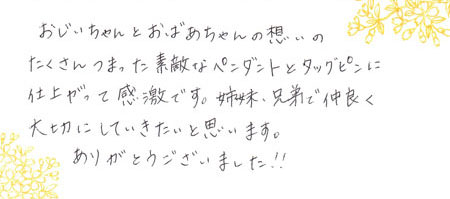 おじいちゃんとおばあちゃんの想いの
たくさんつまった素敵なペンダントとタックピンに
仕上がって感激です。姉妹、兄弟で仲良く
大切にしていきたいと思います。
ありがとうございました!!